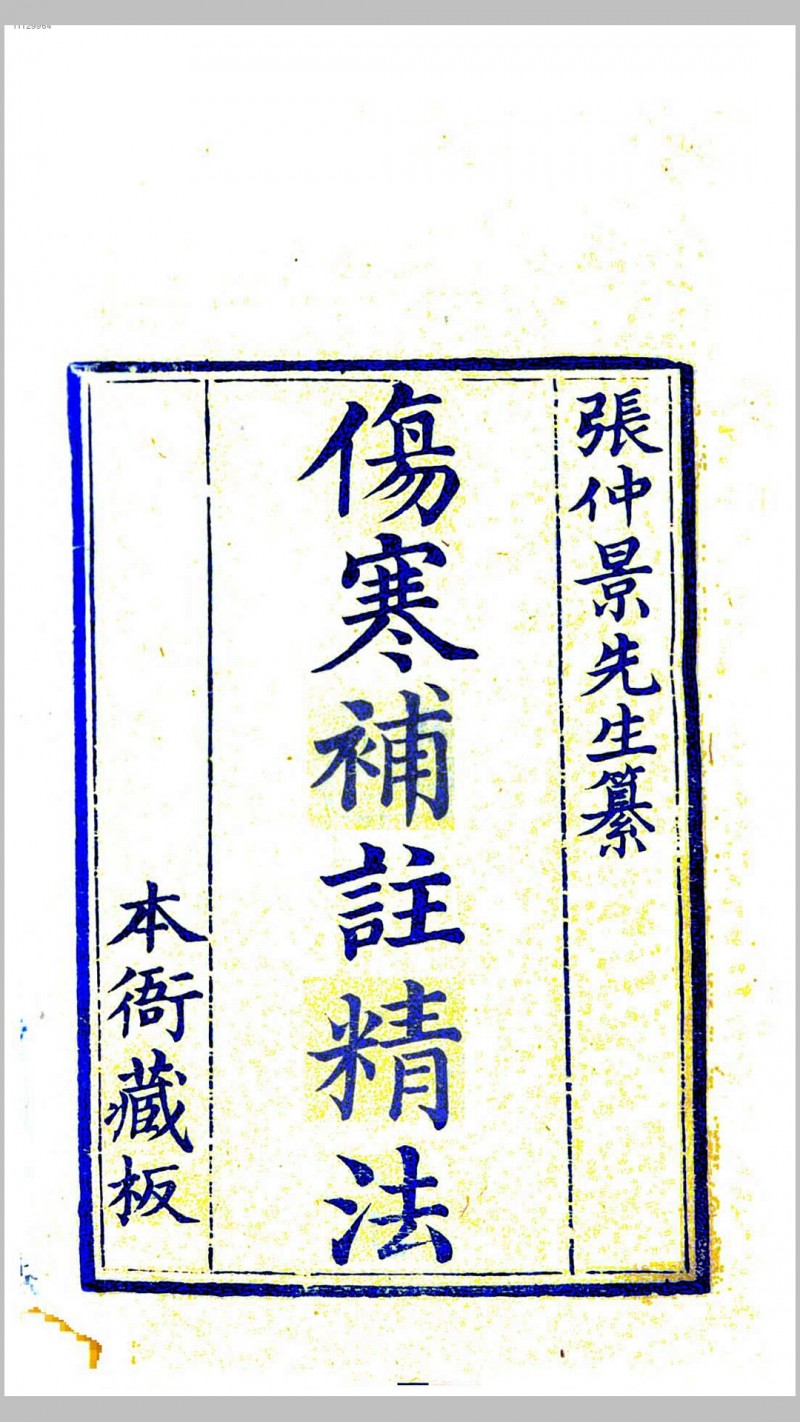 11129964
張仲景先生纂
傷寒補註精法
本衙藏板